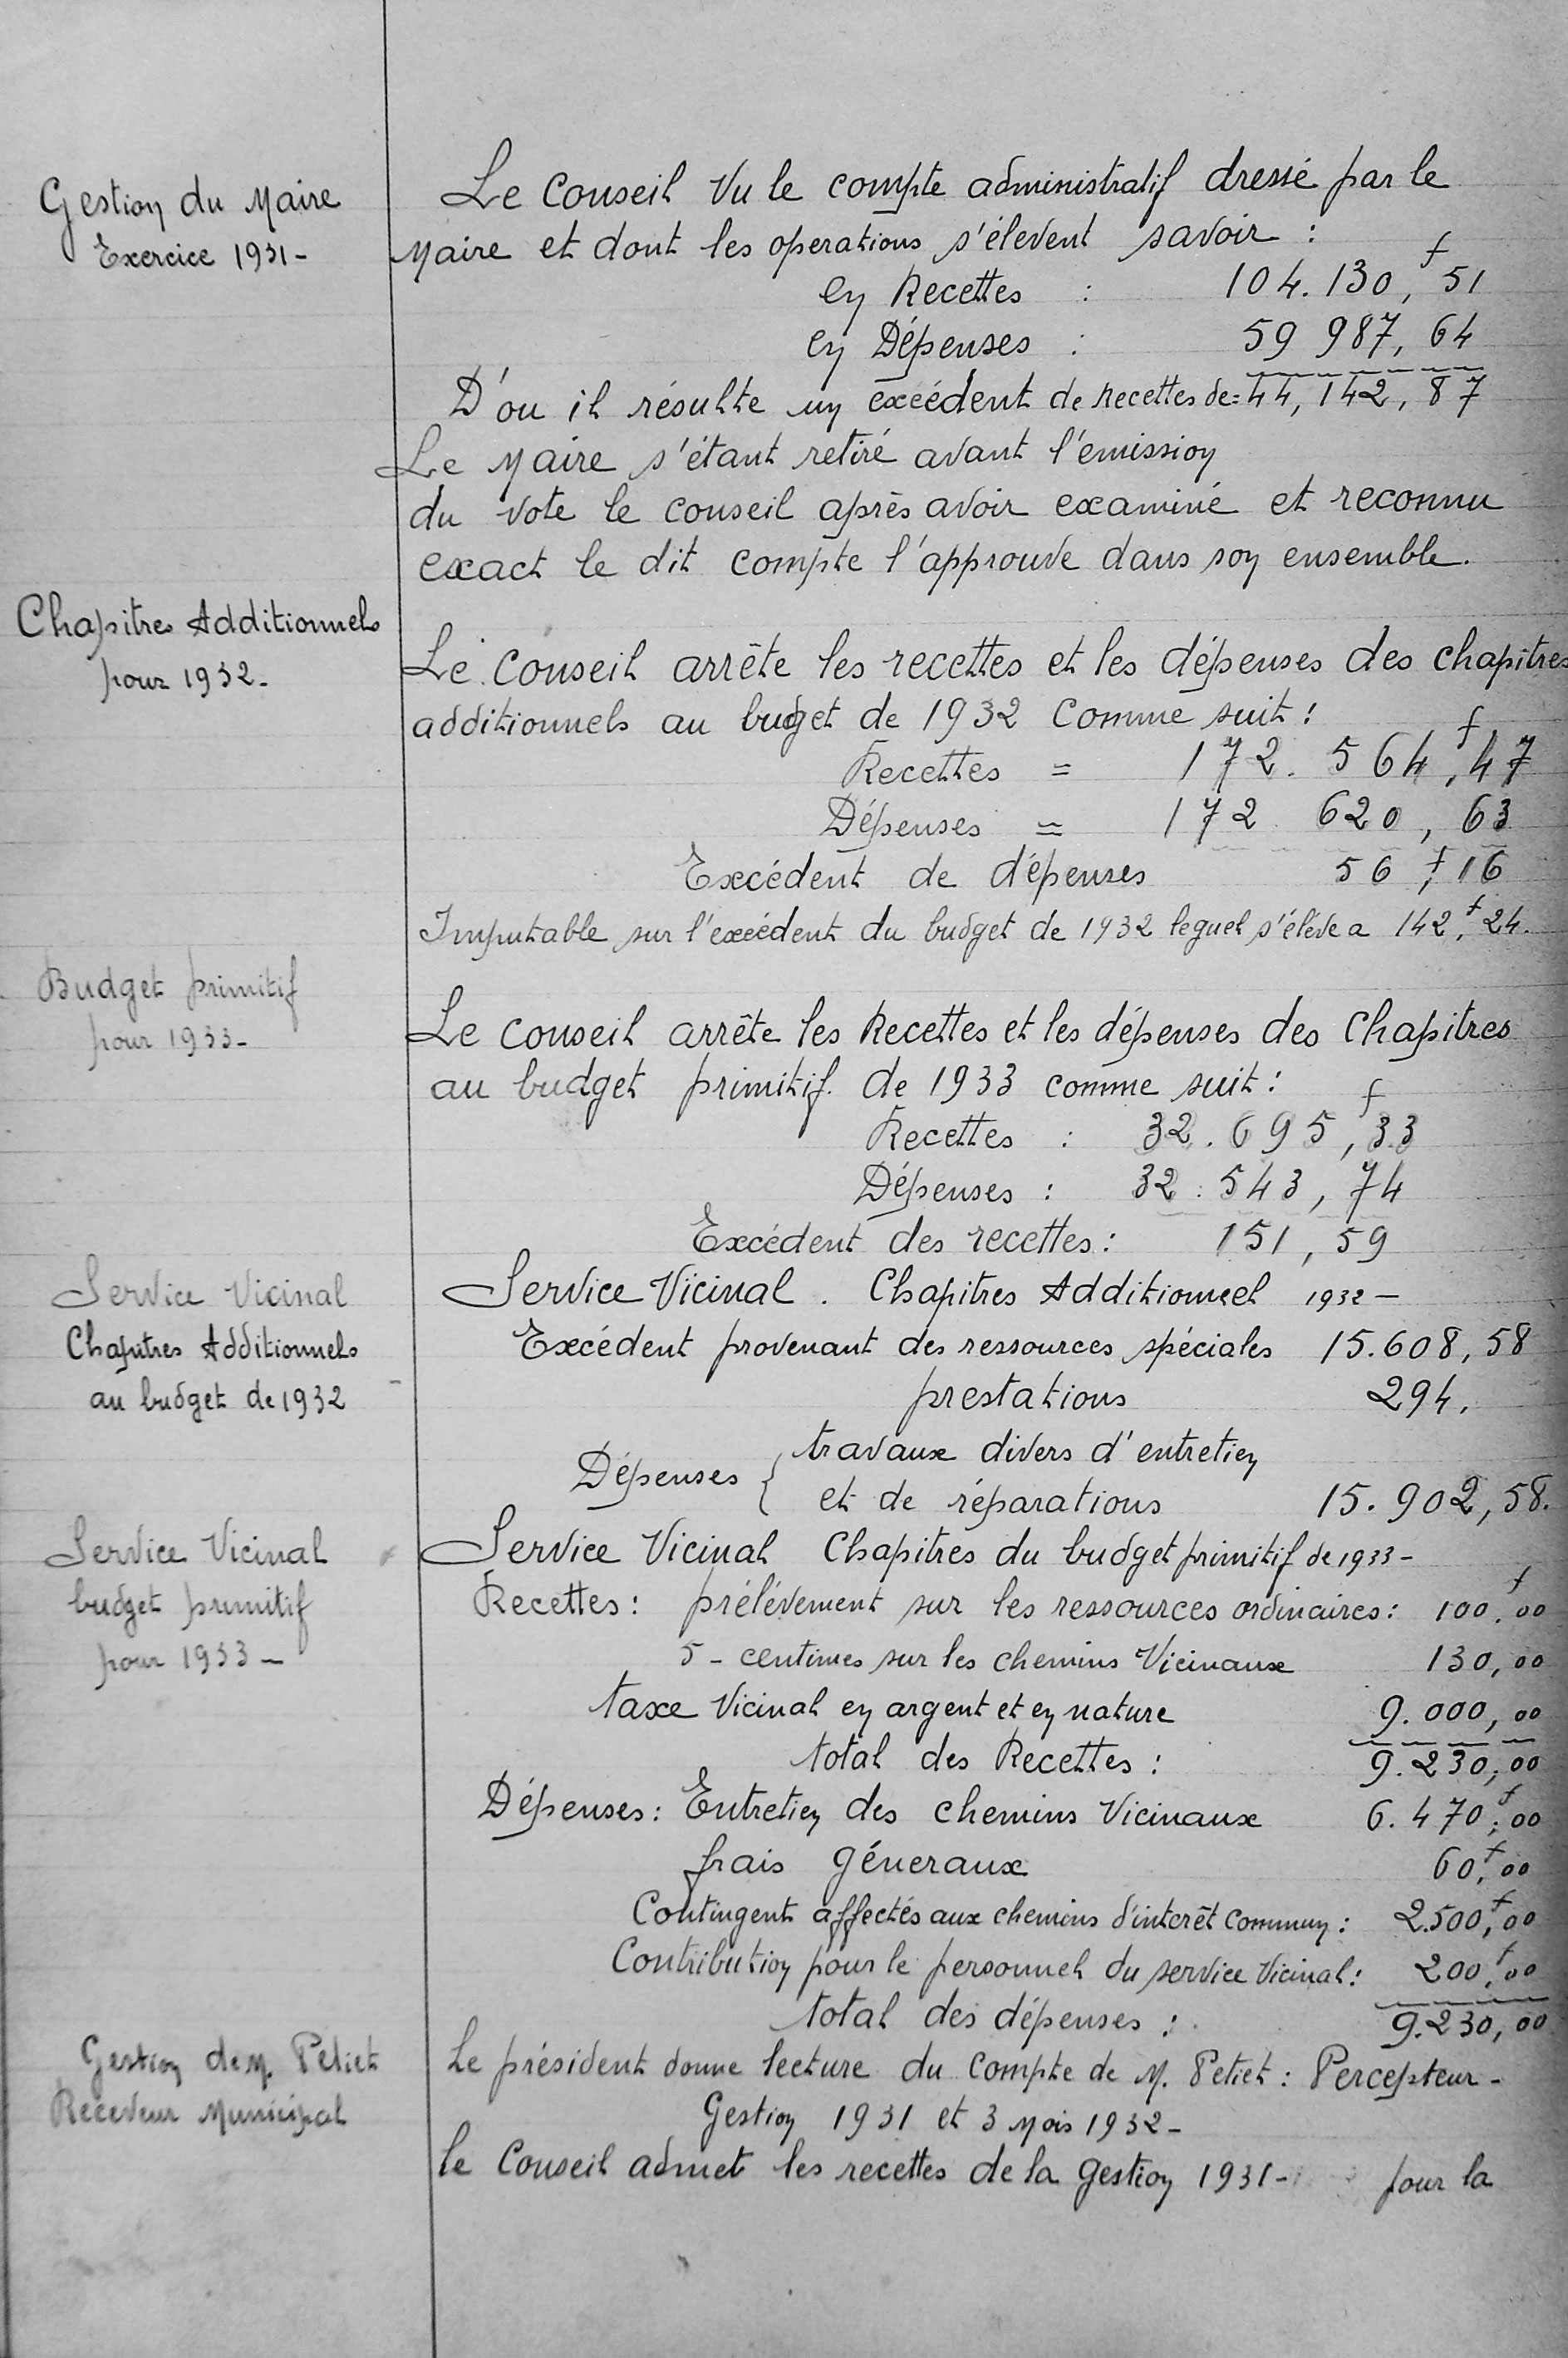 Gestion du Maire
Exercice 1931-
Le Conseil Vu le compte administratif dressé par le
Maire et dont les operations s'élevent savoir :
en Recettes : 104.130,f 51
en Dépenses : 59 987, 64
D'ou il résulte un excédent de recettes de = 44,142,87
Le Maire s'étant retiré avant l'émission
du vote le conseil après avoir examiné et reconnu
exact le dit compte l'approuve dans son ensemble.
Chapitres Additionnels
pour 1932-
Le Conseil arrête les recettes et les dépenses des chapitres
additionnels au budget de 1932 Comme suit :
Recettes = 172. 564,f 47
Dépenses = 172 620, 63
Excédent de dépenses 56,f 16
Imputable sur l'excédent du budget de 1932 lequel s'élève a 142,f 24.
Budget primitif
pour 1933-
Le Conseil arrête les Recettes et les dépenses des Chapitres
au budget primitif. de 1933 comme suit :
Recettes : 32.695,f 33
Dépenses : 32.543, 74
Excédent des recettes : 151, 59
Service Vicinal
Chapitres Additionnels
au budget de 1932
Service Vicinal. Chapitres Additionnel 1932-
Excédent provenant des ressources spéciales 15.608,58
prestations 294,
Dépenses { travaux divers d'entretien
et de réparations 15.902,58.
Service Vicinal
budget primitif
pour 1933-
Service Vicinal Chapitres du budget primitif de 1933-
Recettes : prélévement sur les ressources ordinaires : 100,f 00
5 - centimes sur les chemins Vicinaux 130,00
taxe Vicinal en argent et en nature 9.000,00
total des Recettes : 9.230,00
Dépenses : Entretien des chemins Vicinaux 6.470,f 00
frais géneraux 60,f 00
Contingent affectés aux chemins d'interêt commun : 2.500,f 00
Contribution pour le personnel du service Vicinal : 200,f 00
total des dépenses : 9.230,00
Gestion de M. Petiet
Receveur Municipal
Le président donne lecture du Compte de M. Petiet : Percepteur-
Gestion 1931 et 3 Mois 1932-
le Conseil admet les recettes de la gestion 1931- pour la